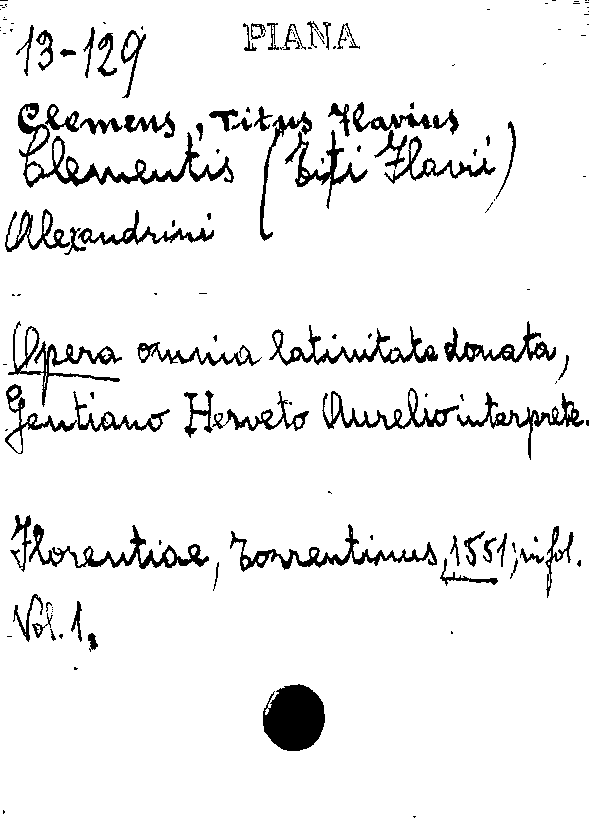 13-129 PIANA
Clemens, Titus Flavius
Clementis (Titi Flavii)
Alexandrini
Opera omnia latinitate donata,
Gentiano Herveto Aurelio interprete.
Florentiae, Torrentinus, 1551; in fol.
Vol. 1.